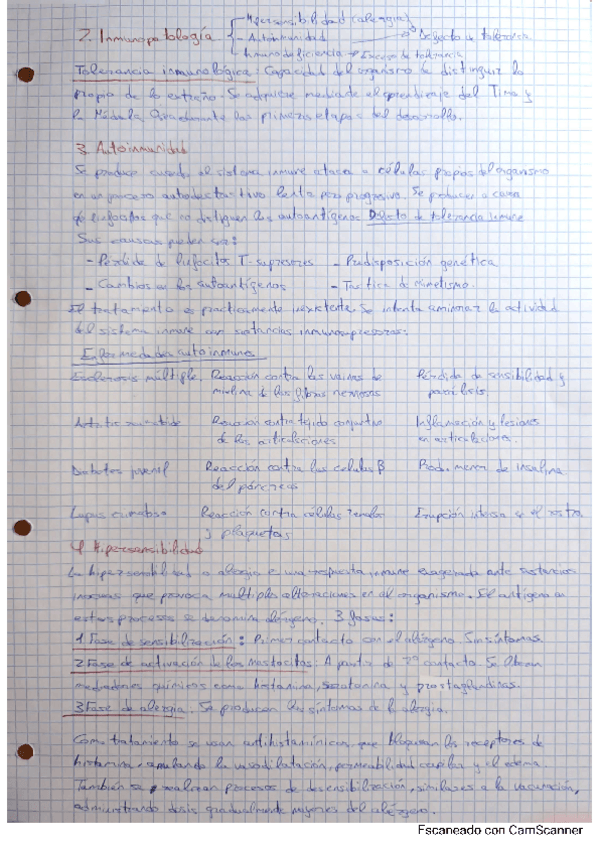 Hipersensibilidad (alergia)
2. Inmunopatología - Autoinmunidad → Defecto de tolerancia
Inmunodeficiencia → Exceso de tolerancia
Tolerancia inmunológica: Capacidad del organismo de distinguir lo
propio de lo extraño. Se adquiere mediante el aprendizaje del Timo y
la Médula durante las primeras etapas del desarrollo.
3. Autoinmunidad
Se produce cuando el sistema inmune ataca a células propias del organismo
en un proceso autodestructivo lento pero progresivo. Se producen a causa
de linfocitos que no distinguen los autoantígenos Defecto de tolerancia inmune
Sus causas pueden ser:
- Pérdida de linfocitos T-supresores - Predisposición genética
- Cambios en los autoantígenos - Táctica de mimetismo.
El tratamiento es practicamente inexistente. Se intenta aminorar la actividad
del sistema inmune con sustancias inmunosupresoras.
Enfermedades autoinmunes
Esclerosis múltiple. Reacción contra las vainas de Pérdida de sensibilidad y
mielina de las fibras nerviosas parálisis.
Artritis reumatoide Reacción contra tejido conjuntivo Inflamación y lesiones
de las articulaciones en articulaciones.
Diabetes juvenil Reacción contra las celulas β Produ. menor de insulina
del páncreas
Lupus eritematoso Reacción contra células renales Erupción intensa en el rostro
y plaquetas
4. Hipersensibilidad
La hipersensibilidad o alergia es una respuesta inmune exagerada ante sustancias
inocuas que provoca multiples alteraciones en el organismo. El antígeno en
estos procesos se denomina alérgeno. 3 fases:
1 Fase de sensibilización: Primer contacto con el alérgeno. Sin síntomas.
2 Fase de activación de los mastocitos: A partir de 2º contacto. Se liberan
mediadores químicos como histamina, serotonina y prostaglandinas.
3 Fase de alergia. Se producen los síntomas de la alergia.
Como tratamiento se usan antihistamínicos, que bloquean los receptores de
histamina, anulando la vasodilatación, permeabilidad capilar y el edema.
También se realizan procesos de desensibilización, similares a la vacunación,
administrando dosis gradualmente mayores del alérgeno.
Escaneado con CamScanner